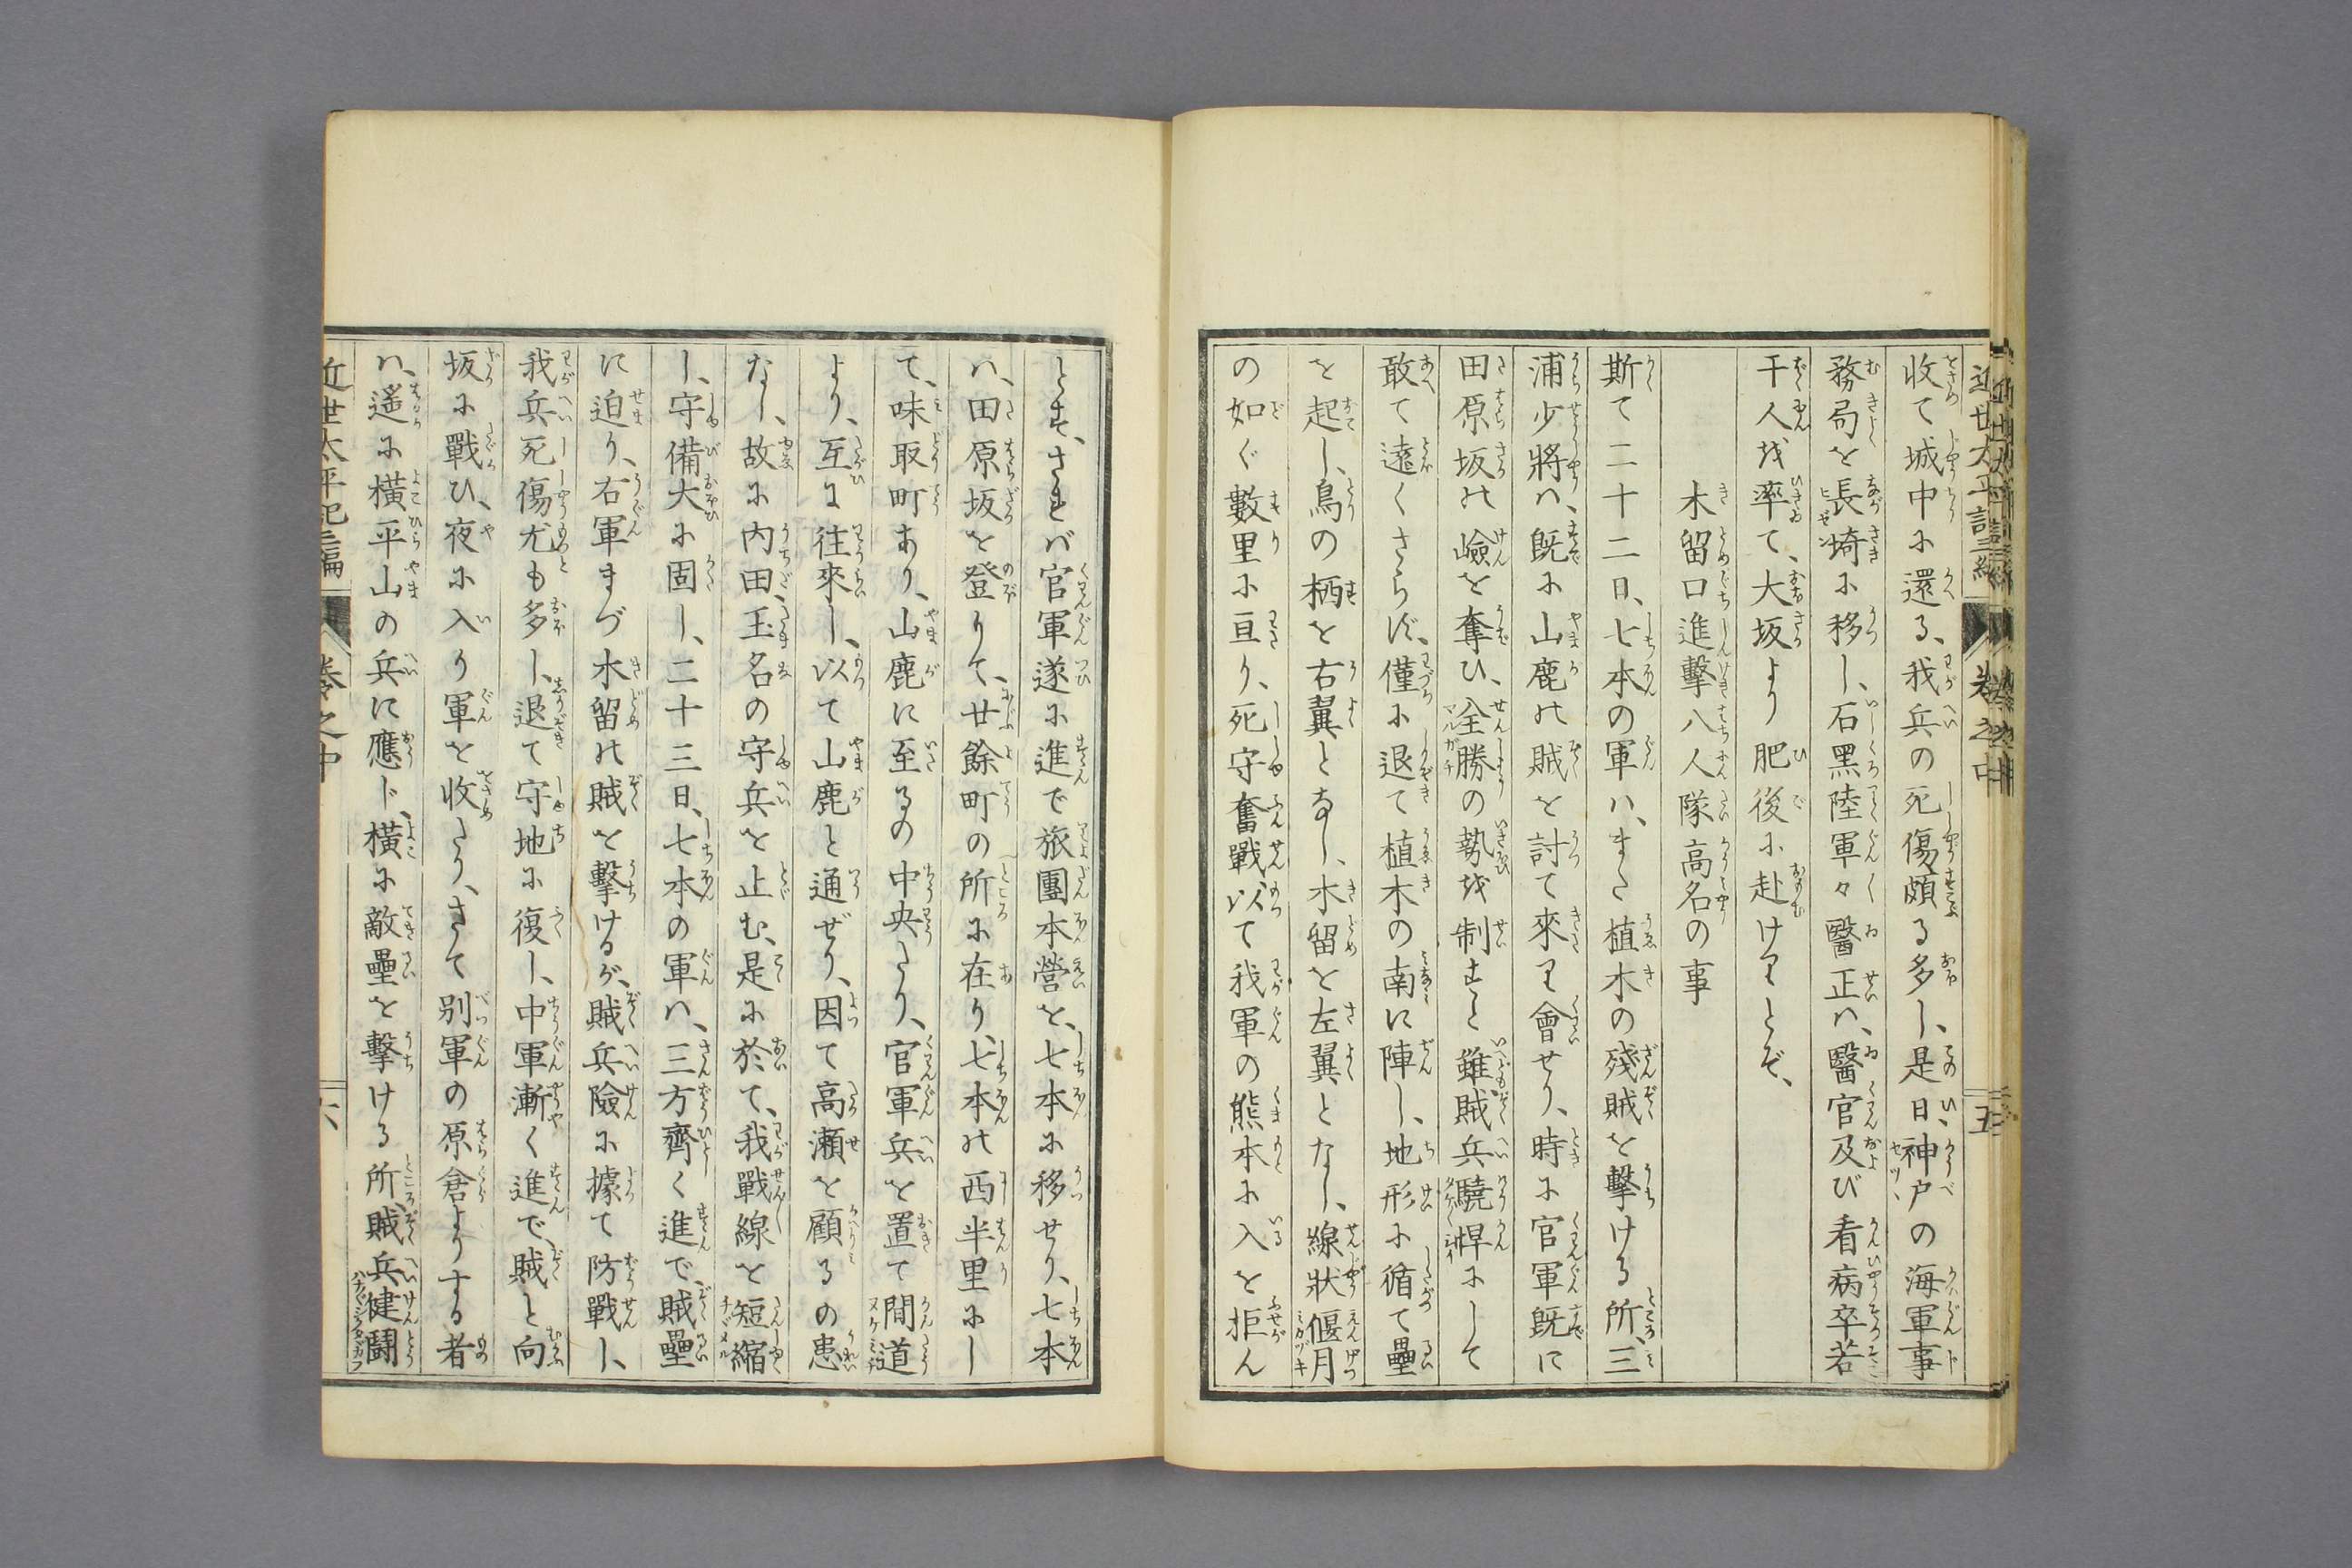 收て城中に還る、我兵の死傷頗る多し、是日、神戸の海軍事
務局を長埼に移し、石黑陸軍々醫正ハ、醫官及び看病卒若
干人を率て、大坂より肥後に赴けりとぞ、
木留口進擊八人隊高名の事
斯て二十二日、七本の軍ハ、また植木の殘賊を擊ける所、三
浦少將ハ、既に山鹿の賊を討て來り會せり、時に官軍既に
田原坂の嶮を奪ひ、全勝の勢を制すと雖、賊兵驍悍にして
敢て遠くさらず、僅に退て植木の南に陣し、地形に循て壘
を起し、鳥の栖を右翼となし、木留を左翼となし、線狀偃月
の如く數里に亘り、死守奮戰以て我軍の熊本に入を拒ん
とす、されバ官軍遂に進で旅團本營を、七本に移せり、七本
ハ、田原坂を登りて、廿餘町の所に在り、七本の西半里にし
て、味取町あり、山鹿に至るの中央たり、官軍兵を置て間道
より、互に往來し、以て山鹿と通ぜり、因て高瀨を顧るの患
なし、故に内田、玉名の守兵を止む、是に於て、我戰線を短縮
し、守備大に固し、二十三日、七本の軍ハ、三方齊く進で、賊壘
に迫り、右軍まづ木留の賊を擊けるが、賊兵險に據て防戰し、
我兵死傷尤も多し、退て守地に復し、中軍漸く進で、賊と向
坂に戰ひ、夜に入り軍を收めたり、さて別軍の原倉よりする者
ハ、遙に橫平山の兵に應じ、橫に敵壘を擊ける所、賊兵健鬪
近世太平記三編 卷之中 六
近世太平記三編 卷之中 五